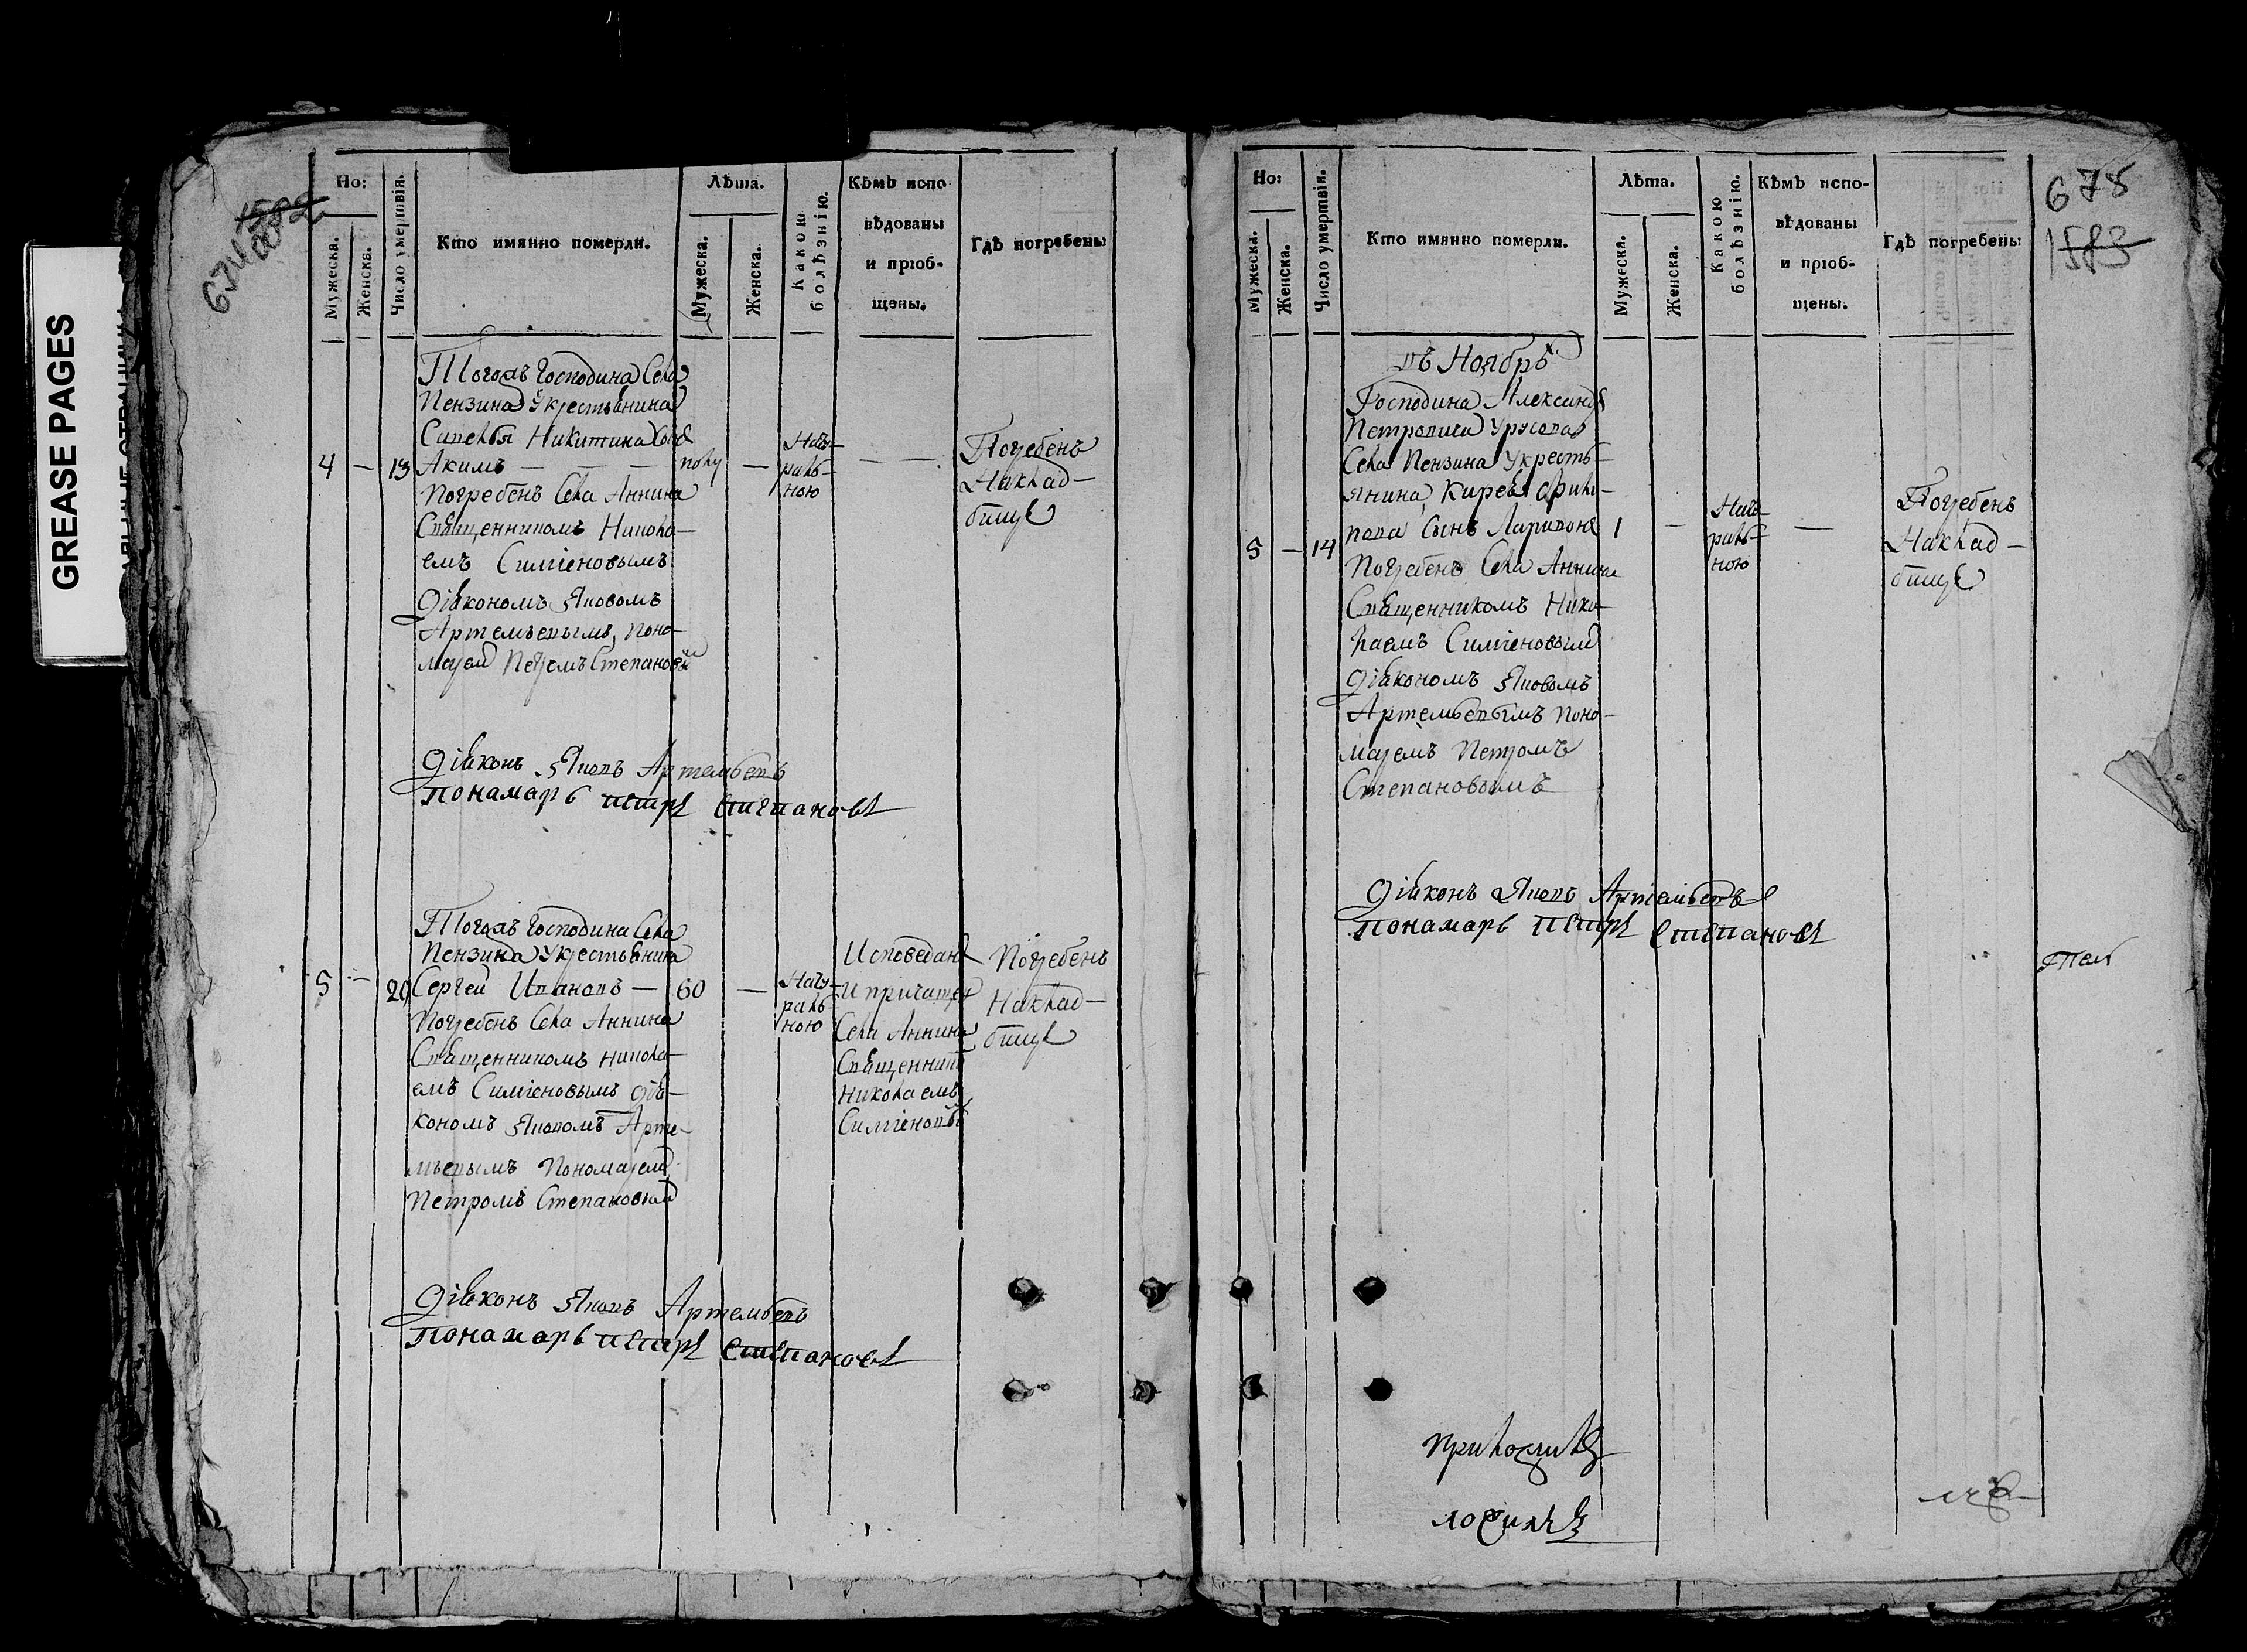 GREASE PAGES
1582
674 об
Но:
Мужеска.
Женска.
Число умертвія.
Кто имянно померли.
Лѣта.
Мужеска.
Женска.
Какою
болѣзнію.
Кѣмъ испо-
вѣдованы
и пріоб-
щены.
Гдѣ погребены
Тогожъ Господина Села
Пензина Укрестьянина
Савелья Никитина сынъ
4 — 13 Акимъ — — — полу —
Погребенъ Села Аннина
Священникомъ Никола-
емъ Симіеновымъ
Діакономъ Яковомъ
Артемьевымъ, Поно-
маремъ Петромъ Степановымъ
Нату-
раль-
ною
— —
Погребенъ
Наклад-
бище
Діаконъ Яковъ Артемьевъ
Понамарь Петръ Степановъ
Тогожъ Господина Села
Пензина Укрестьянина
5 — 20 Сергей Ивановъ — 60 —
Погребенъ Села Аннина
Священникомъ Никола-
емъ Симіеновымъ Діа-
кономъ Яковомъ Арте-
мьевымъ Пономаремъ
Петромъ Степановымъ
Нату-
раль-
ною
Исповедан
И причащен
Села Аннина
Священникъ
Николаемъ
Симіеновы
Погребенъ
Наклад-
бище
Діаконъ Яковъ Артемьевъ
Понамарь Петръ Степановъ
675
1583
Но:
Мужеска.
Женска.
Число умертвія.
Кто имянно померли.
Лѣта.
Мужеска.
Женска.
Какою
болѣзнію.
Кѣмъ испо-
вѣдованы
и пріоб-
щены.
Гдѣ погребены
въ Ноябрѣ
Господина Александра
Петровича Урусова
Села Пензина Укресть-
янина Кирея Фили-
пова Сынъ Ларивонъ 1 —
5 — 14 Погребенъ Села Аннина
Священникомъ Нико-
лаемъ Симіеновымъ
Діакономъ Яковомъ
Артемьевымъ Поно-
маремъ Петромъ
Степановымъ
Нату-
раль-
ною
—
Погребенъ
Наклад-
бище
Діаконъ Яковъ Артемьевъ
Понамарь Петръ Степановъ